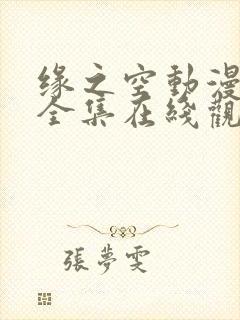 缘之空動漫
全集在綫觀
張夢雯